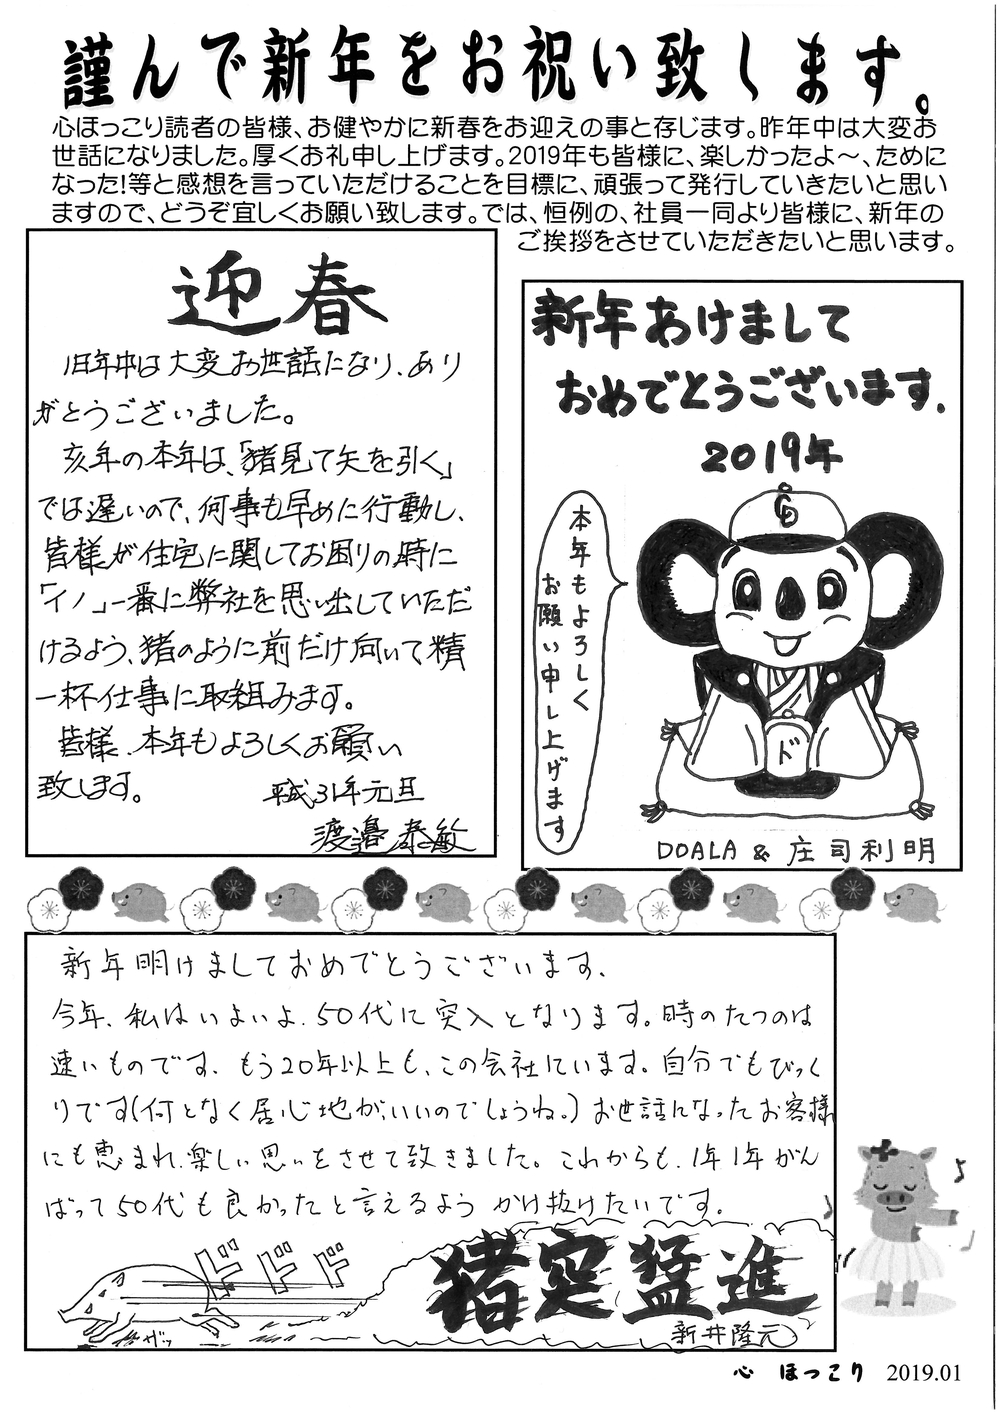 謹んで新年をお祝い致します。
心ほっこり読者の皆様、お健やかに新春をお迎えの事と存じます。昨年中は大変お
世話になりました。厚くお礼申し上げます。2019年も皆様に、楽しかったよ～、ために
なった!等と感想を言っていただけることを目標に、頑張って発行していきたいと思い
ますので、どうぞ宜しくお願い致します。では、恒例の、社員一同より皆様に、新年の
ご挨拶をさせていただきたいと思います。
迎春
旧年中は大変お世話になり、あり
がとうございました。
亥年の本年は、「猪見て矢を引く」
では遅いので、何事も早めに行動し、
皆様が住宅に関してお困りの時に
「イノ」一番に弊社を思い出していただ
けるよう、猪のように前だけ向いて精
一杯仕事に取組みます。
皆様、本年もよろしくお願い
致します。
平成31年元旦
渡邉泰敏
新年あけまして
おめでとうございます.
2019年
本年もよろしく
お願い申し上げます
CD
ド
DOALA & 庄司利明
新年明けましておめでとうございます、
今年、私はいよいよ、50代に突入となります。時のたつのは
速いものです、もう20年以上も、この会社にいます。自分でもびっく
りです(何となく居心地がいいのでしょうね。)お世話になったお客様
にも恵まれ、楽しい思いをさせて致きました。これからも、1年1年がん
ばって50代も良かったと言えるようかけ抜けたいです.
ドドド
ガッ
猪突猛進
新井隆元
心 ほっこり 2019.01